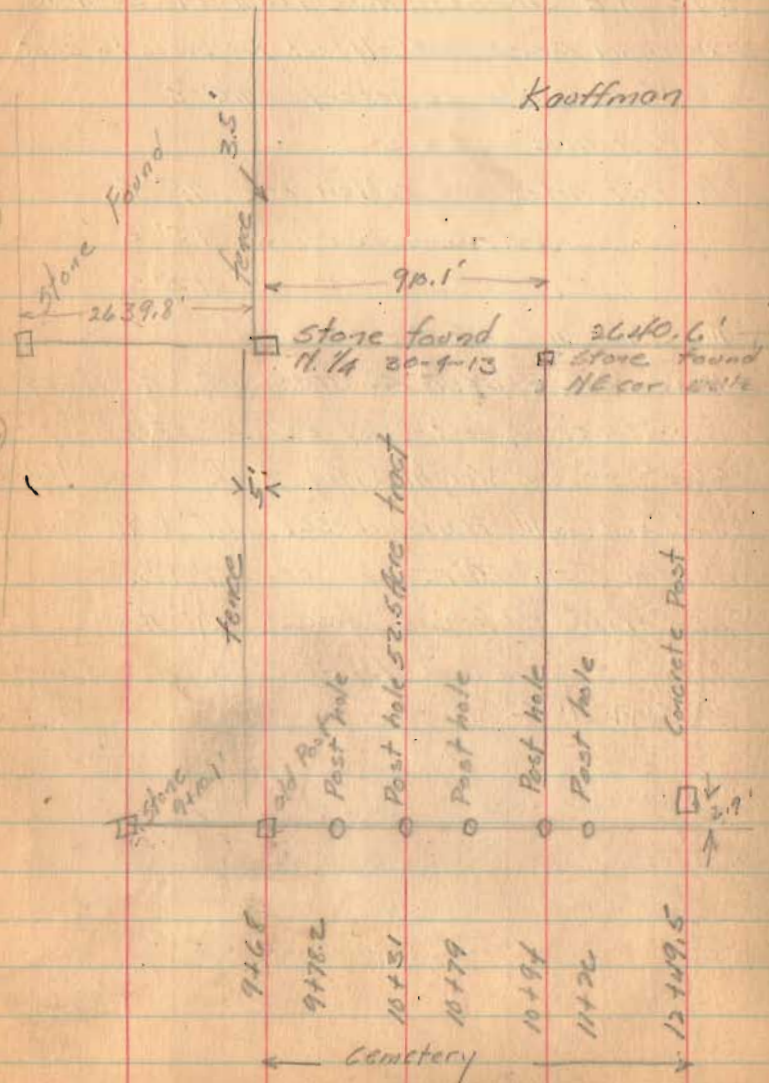 Kauffman
3.5'
fence
Stone Found
2639.8'
910.1'
Stone found
N. 1/4 30-9-13
2640.6'
Stone found
NE cor.
5'
fence
Stone
9+10.1'
old Post
Post hole
Post hole 52.5 Acre tract
Post hole
Post hole
Post hole
Concrete Post
2.9'
9+68
9+78.2
10+31
10+79
10+94
11+26
12+49.5
Cemetery